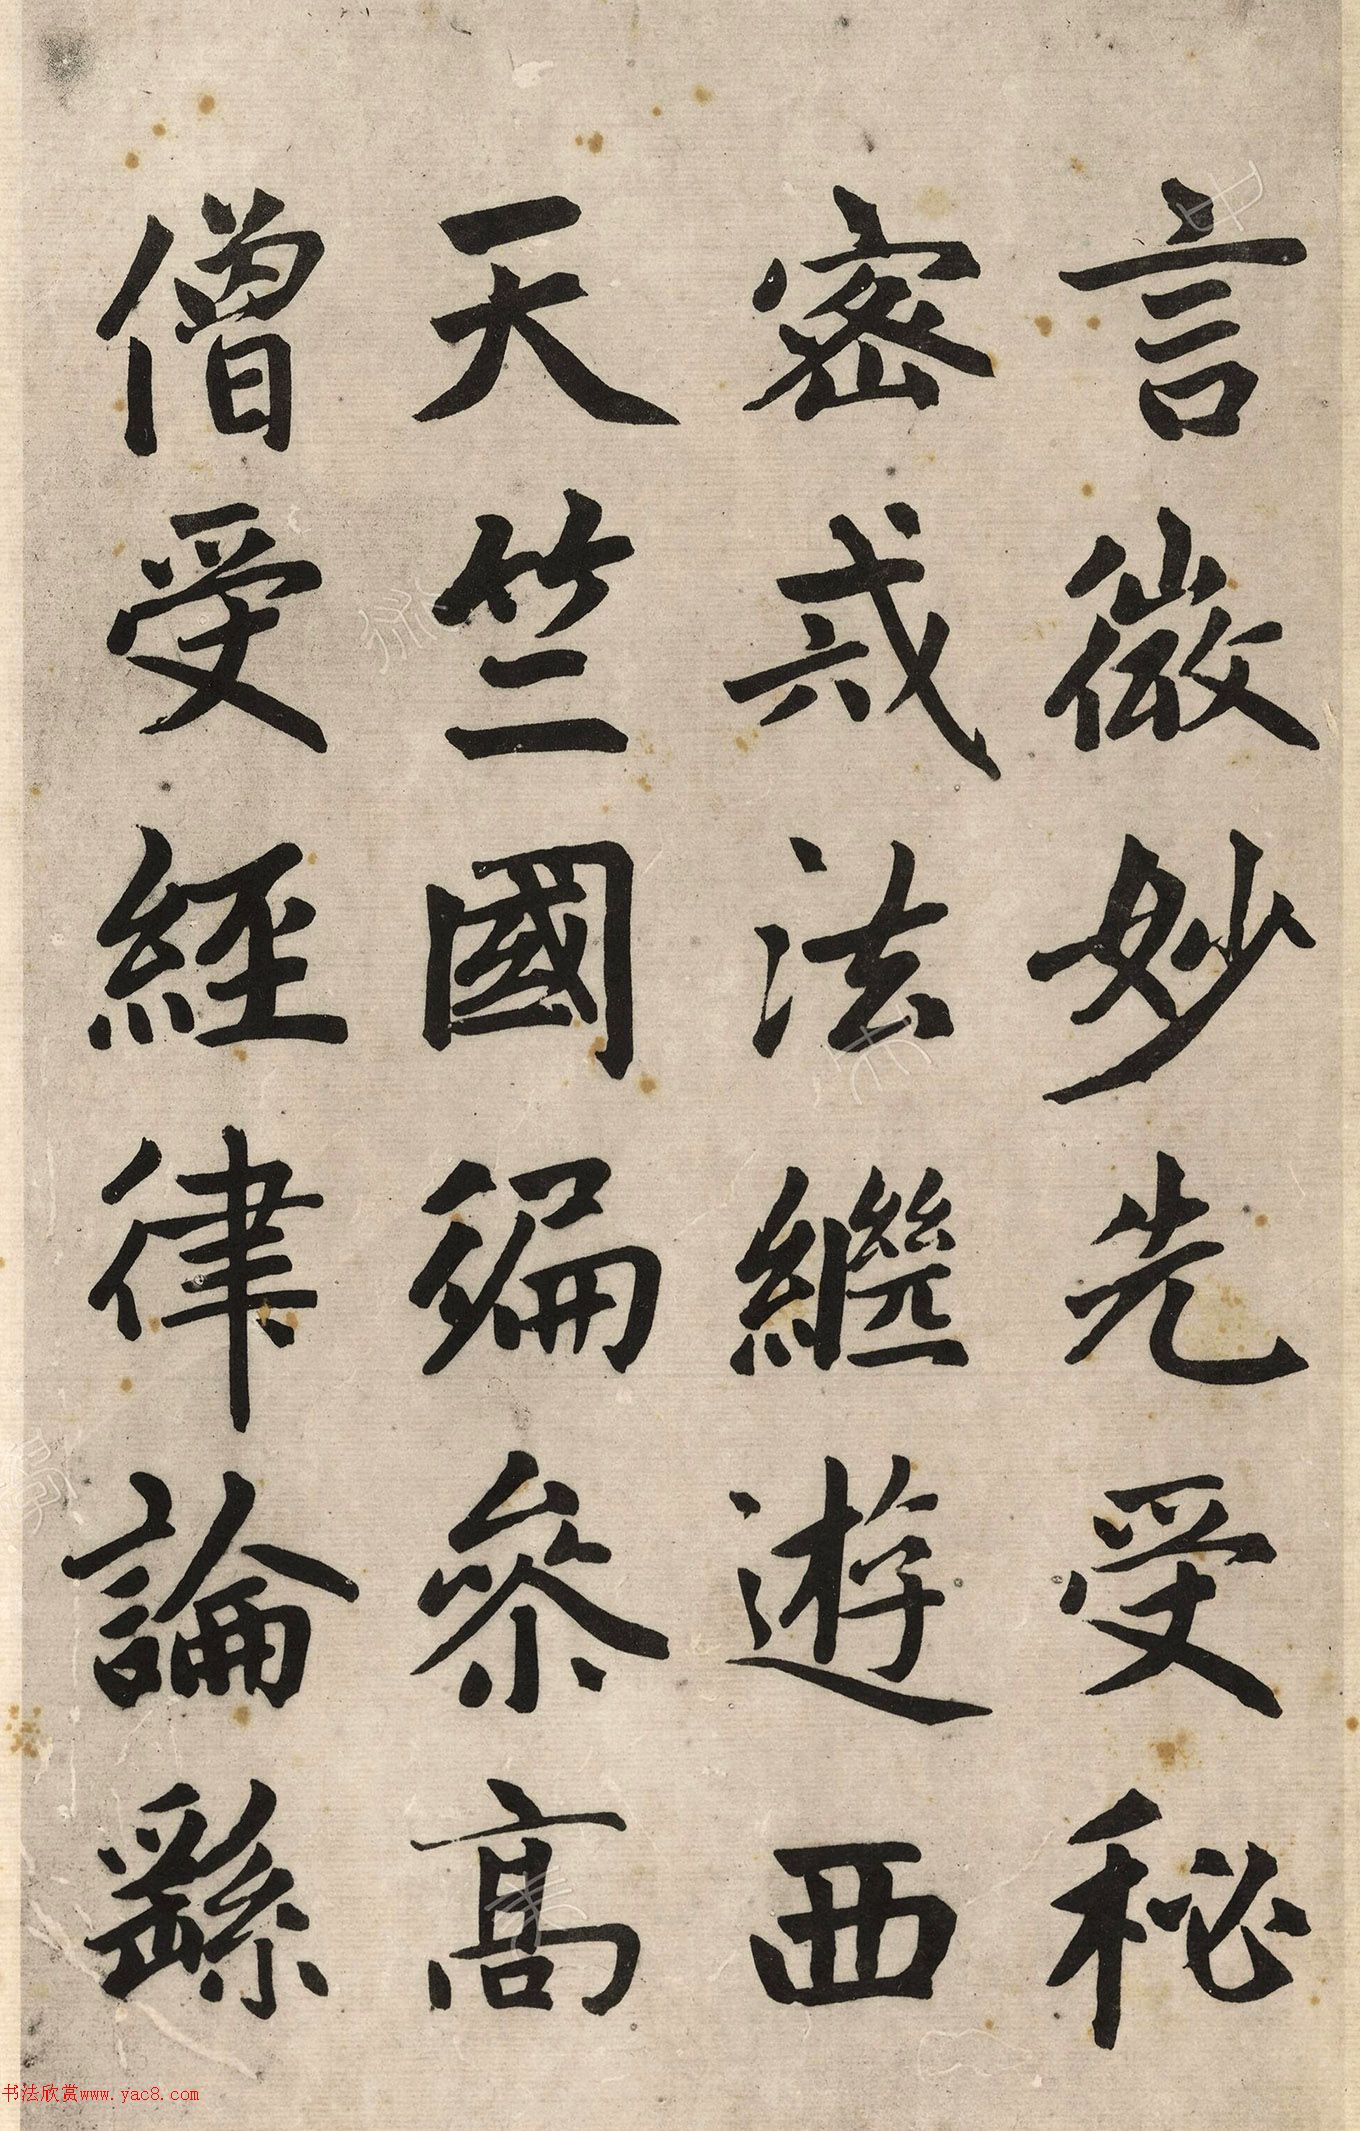 言微妙先受秘
密戒法繼遊西
天竺國徧參高
僧受經律論繇
书法欣赏www.yac8.com